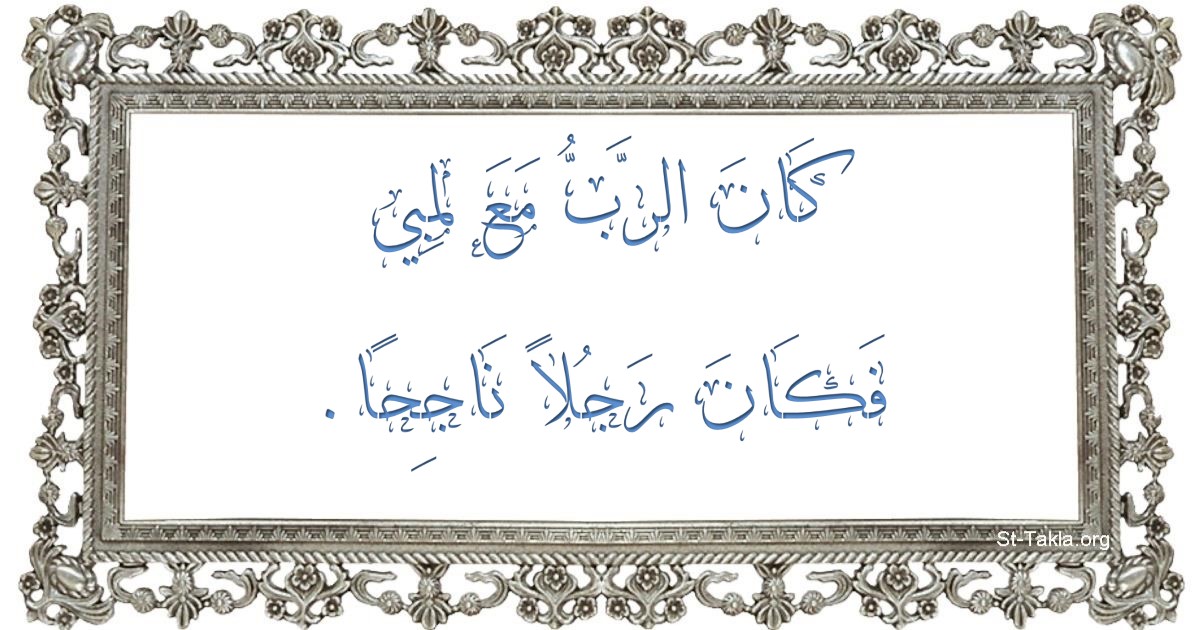 كَانَ الرَّبُّ مَعَ لمِبِي
فَكَانَ رَجُلاً نَاجِحًا .
St-Takla.org